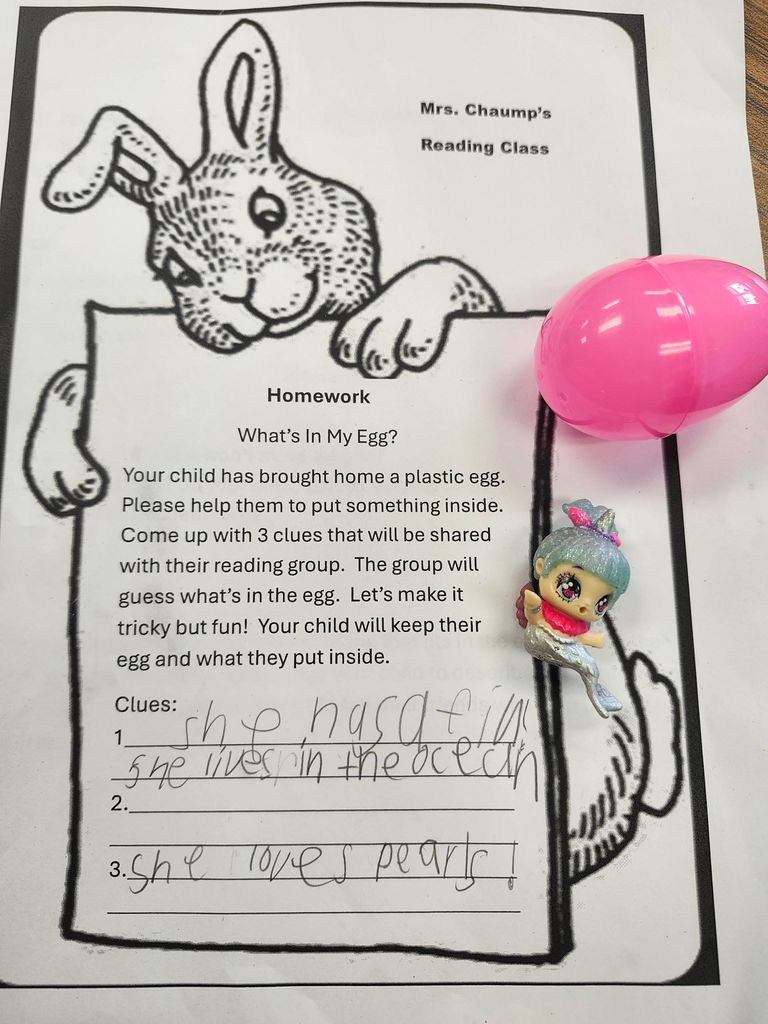 Mrs. Chaump's
Reading Class
Homework
What's In My Egg?
Your child has brought home a plastic egg.
Please help them to put something inside.
Come up with 3 clues that will be shared
with their reading group. The group will
guess what's in the egg. Let's make it
tricky but fun! Your child will keep their
egg and what they put inside.
Clues:
1 she has a fin!
she lives in the ocean
2.
3. she loves pearls!